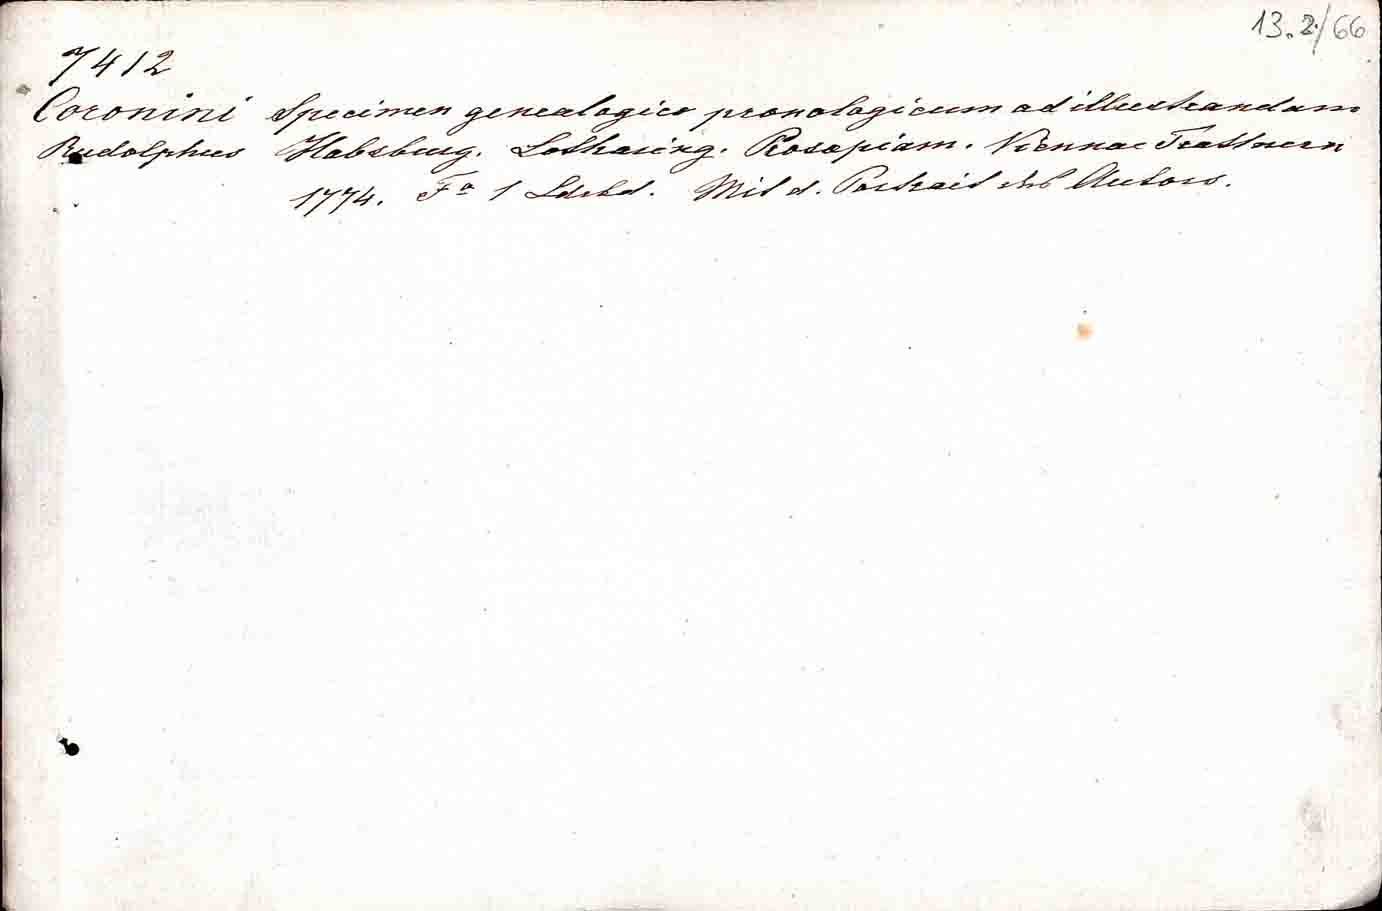 13.2/66
7412
Coronini Specimen genealogico pronologicum ad illustrandam
Rudolphus Habsburg. Lotharing. Rosapiam. Viennae Trattnern
1774. Fo 1 Ldrbd. Mit d. Portrait des Autors.